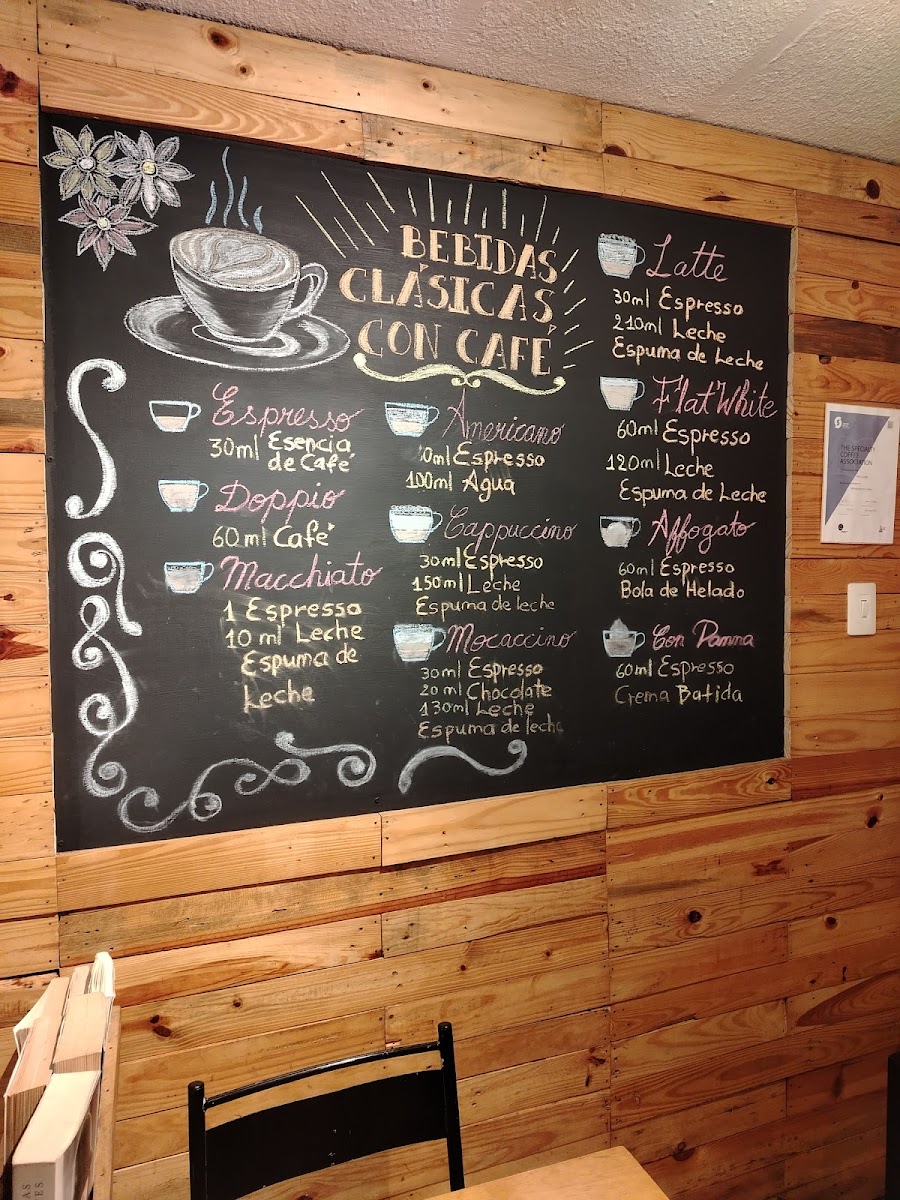 BEBIDAS
CLÁSICAS
CON CAFÉ
Espresso
30ml Esencia
de Café
Doppio
60ml Café
Macchiato
1 Espresso
10 ml Leche
Espuma de
Leche
Americano
Espresso
100ml Agua
Cappuccino
30ml Espresso
150ml Leche
Espuma de leche
Mocaccino
30ml Espresso
20ml Chocolate
130ml Leche
Espuma de leche
Latte
30ml Espresso
210ml Leche
Espuma de Leche
Flat White
60ml Espresso
120ml Leche
Espuma de Leche
Affogato
60ml Espresso
Bola de Helado
Con Panna
60ml Espresso
Crema Batida
THE SPECIALTY
COFFEE
ASSOCIATION